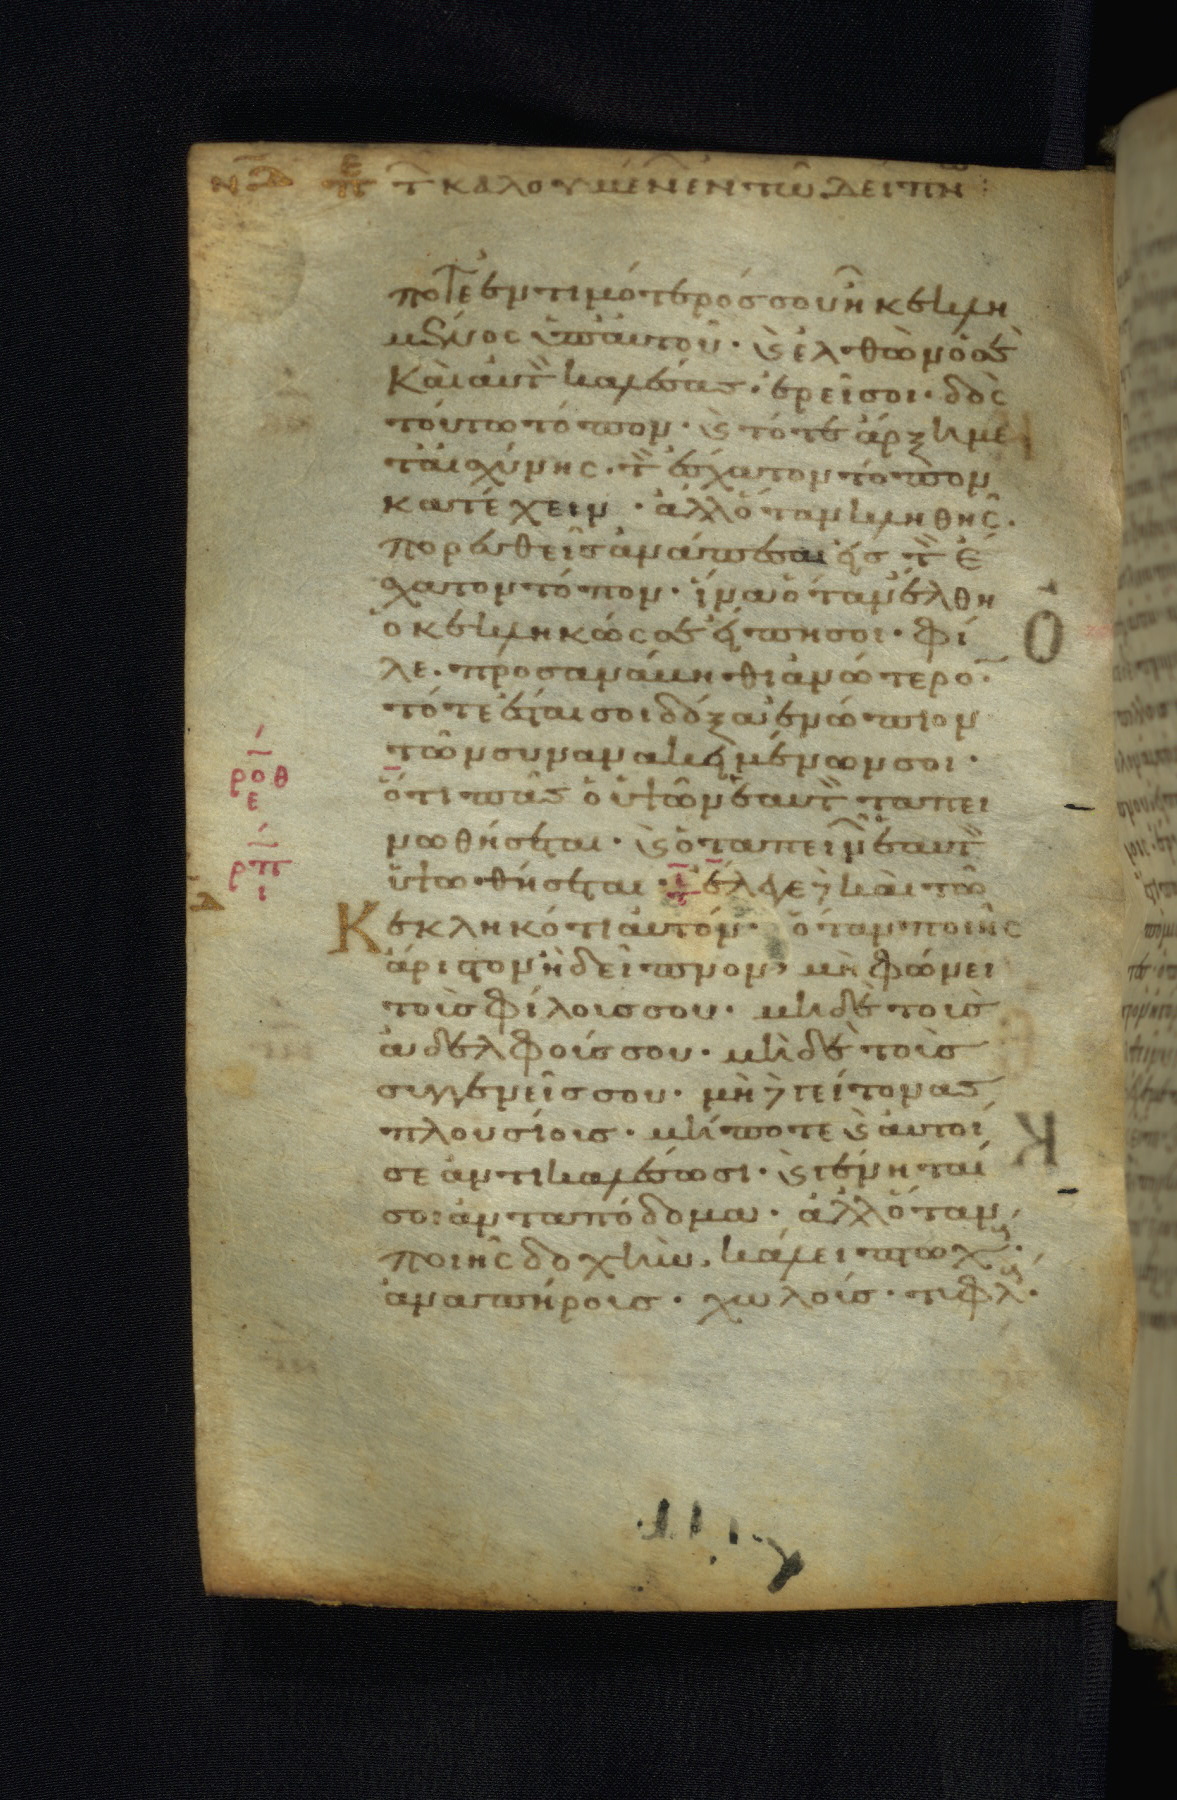 πε τ καλουμένεν τῶ δείπν
ποτε ἐντιμότερός σου ἦ κεκλη
μένος ὑπ' ἀυτοῦ· ϗ ἐλθὼν ὁ σὲ
Και ἀυτὸν καλέσας· ἐρεῖ σοι· δὸς
τούτω τόπον· ϗ τότε ἄρξη με
τ' ἀισχύνης· τὸν ἔσχατον τόπον
κατέχειν· ἀλλ' ὅταν κληθῆς·
πορευθεὶς ἀνάπεσαι εἰς τὸν ἔ
σχατον τόπον· ἵνα ὅταν ἔλθη
ὁ κεκληκώς σε εἴπη σοι· φί
λε· προσανάβηθι ἀνώτερον·
τότε ἔσται σοι δόξα ἐνώπιον
τῶν συνανακειμένων σοι·
ὅτι πᾶς ὁ ὑψῶν ἑαυτὸν ταπει
νωθήσεται· ϗ ὁ ταπεινῶν ἑαυτὸν
ὑψωθήσεται· ἔλεγε δὲ καὶ τῶ
Κεκληκότι ἀυτόν· ὅταν ποιῆς
ἄριστον ἢ δεῖπνον, μὴ φώνει
τοὺς φίλους σου· μηδὲ τοὺς
ἀδελφούς σου· μηδὲ τοὺς
συγγενεῖς σου· μὴ δὲ γείτονας
πλουσίους· μήποτε ϗ ἀυτοί
σε ἀντικαλέσωσι· ϗ γένηταί
σοι ἀνταπόδομα· ἀλλ' ὅταν
ποιῆς δοχὴν, κάλει πτωχούς·
ἀναπήρους· χωλούς· τυφλούς·
ροθ
ε
ρπ
ι